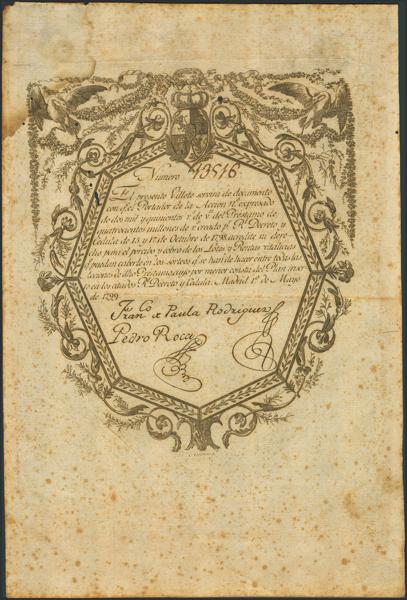 Numero 13516
El presente Villete servirá de documento
con q.e el Portador de la Accion n.º expresado
de dos mil y quinientos r.s de v.n del Préstamo de
quatrocientos millones de r.s creado p.r R.l Decreto y
Cédula de 15 y 17 de Octubre de 1798 acredite su dere-
cho para el percibo y cobro de los Lotes y Rentas vitalicias
q.e puedan caberle en los sorteos q.e se han de hacer entre todas las
Acciones de dho Préstamo, cuyo por menor consta del Plan inser-
to en los citados R.l Decreto y Cédula. Madrid 1.º de Mayo
de 1799.
Fran.co x Paula Rodriguez
Pedro Roca